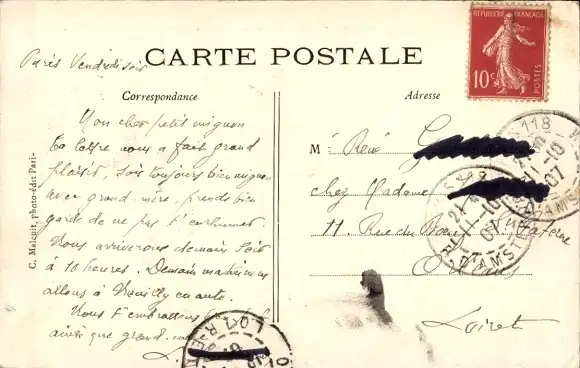 CARTE POSTALE
RÉPUBLIQUE FRANÇAISE
10c
POSTES
Paris Vendredi soir
Correspondance
Mon cher petit mignon
Ta lettre nous a fait grand
plaisir, sois toujours bien mignon
avec grand-mère, prends bien
garde de ne pas t'enrhumer.
Nous arriverons demain soir
à 10 heures. Demain matin nous
allons à Neuilly en auto.
Nous t'embrassons
ainsi que grand-
Adresse
M: René
chez Madame
11. Rue du
Loiret
C. Malcuit, photo-édit Paris
118
21
11-10
07
R. D'AMSTERDAM
LOIRET